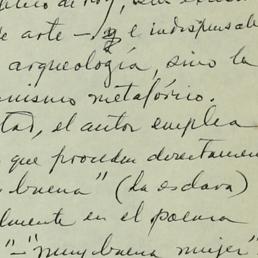 de arte – y e indispensable
arqueología, sino la
nismo metafórico.
tad, el autor emplea
que proceden directamen
buena" (La esclava)
lmente en el poema
"–"muy buena mujer"